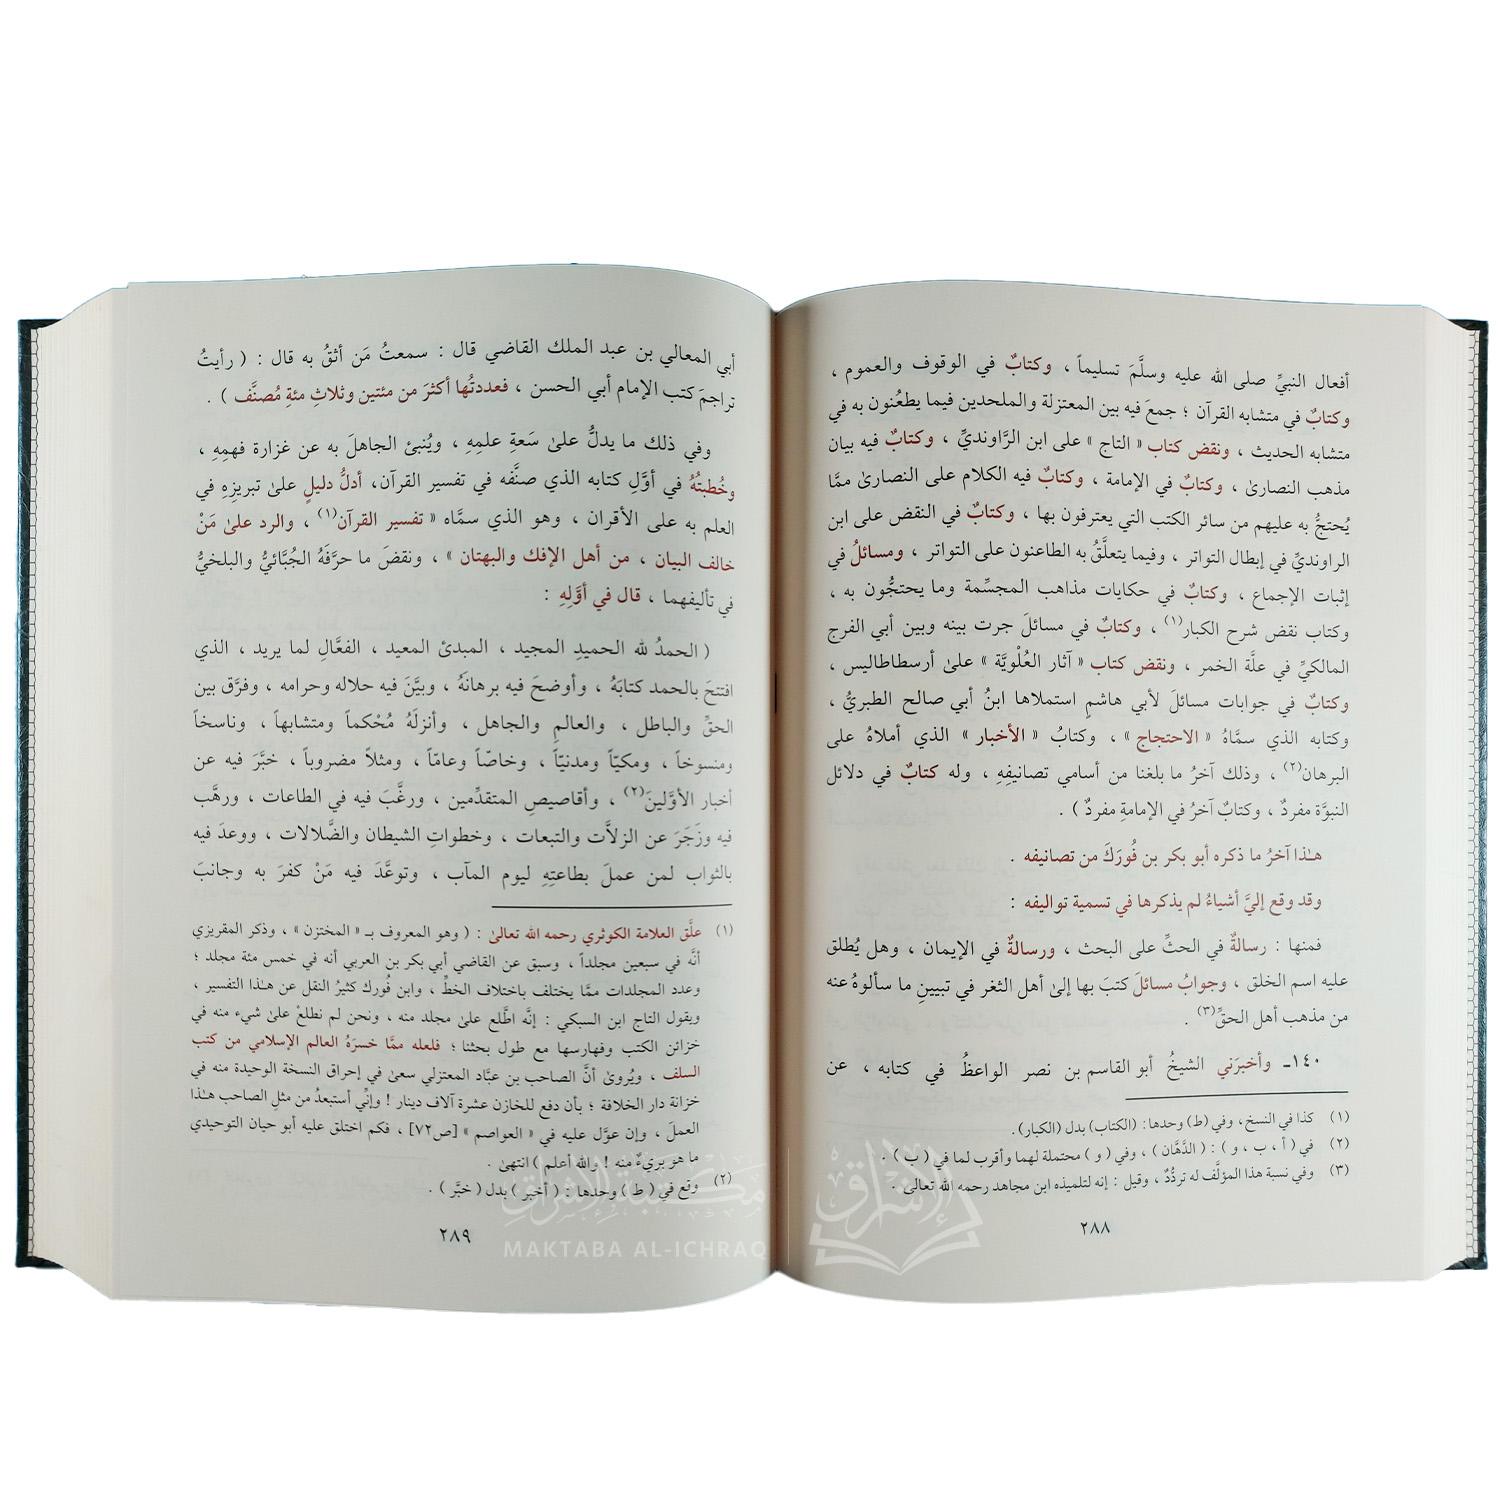 أفعال النبيِّ صلى الله عليه وسلَّمَ تسليماً ، وكتابٌ في الوقوف والعموم ،
وكتابٌ في متشابه القرآن ؛ جمعَ فيه بين المعتزلة والملحدين فيما يطعُنون به في
متشابه الحديث ، ونقض كتاب « التاج » على ابن الرَّاونديِّ ، وكتابٌ فيه بيان
مذهب النصارىٰ ، وكتابٌ في الإمامة ، وكتابٌ فيه الكلام على النصارىٰ ممَّا
يُحتجُّ به عليهم من سائر الكتب التي يعترفون بها ، وكتابٌ في النقض على ابن
الراونديِّ في إبطال التواتر ، وفيما يتعلَّقُ به الطاعنون على التواتر ، ومسائلُ في
إثبات الإجماع ، وكتابٌ في حكايات مذاهب المجسِّمة وما يحتجُّون به ،
وكتاب نقض شرح الكبار(١) ، وكتابٌ في مسائلَ جرت بينه وبين أبي الفرج
المالكيِّ في علَّة الخمر ، ونقض كتاب « آثار العُلْويَّة » علىٰ أرسطاطاليس ،
وكتابٌ في جوابات مسائلَ لأبي هاشمٍ استملاها ابنُ أبي صالح الطبريُّ ،
وكتابه الذي سمَّاهُ « الاحتجاج » ، وكتابُ « الأخبار » الذي أملاهُ على
البرهان(٢) ، وذلك آخرُ ما بلغنا من أسامي تصانيفِهِ ، وله كتابٌ في دلائل
النبوَّة مفردٌ ، وكتابٌ آخرُ في الإمامةِ مفردٌ ) .
هـٰذا آخرُ ما ذكره أبو بكر بن فُورَكَ من تصانيفه .
وقد وقع إليَّ أشياءُ لم يذكرها في تسمية تواليفه :
فمنها : رسالةٌ في الحثِّ على البحث ، ورسالةٌ في الإيمان ، وهل يُطلق
عليه اسم الخلق ، وجوابُ مسائلَ كتبَ بها إلىٰ أهل الثغر في تبيينِ ما سألوهُ عنه
من مذهب أهل الحقِّ(٣) .
١٤٠ـ وأخبرَني الشيخُ أبو القاسم بن نصر الواعظُ في كتابه ، عن
(١) كذا في النسخ، وفي (ط) وحدها: (الكتاب) بدل (الكبار).
(٢) في ( أ ، ب ، و ) : ( الدَّهَّان ) ، وفي ( و ) محتملة لهما وأقرب لما في ( ب ) .
(٣) وفي نسبة هذا المؤلَّف له تردُّدٌ ، وقيل : إنه لتلميذه ابن مجاهد رحمه الله تعالىٰ .
٢٨٨
أبي المعالي بن عبد الملك القاضي قال : سمعتُ مَن أثقُ به قال : ( رأيتُ
تراجمَ كتب الإمام أبي الحسن ، فعددتُها أكثرَ من مئتين وثلاثِ مئةِ مُصنَّف ) .
وفي ذلك ما يدلُّ علىٰ سَعةِ علمِهِ ، ويُنبئ الجاهلَ به عن غزارة فهمِهِ ،
وخُطبتُهُ في أوَّلِ كتابه الذي صنَّفه في تفسير القرآن، أدلُّ دليلٍ علىٰ تبريزِهِ في
العلم به على الأقران ، وهو الذي سمَّاه « تفسير القرآن(١) ، والرد علىٰ مَنْ
خالف البيان ، من أهل الإفك والبهتان » ، ونقضَ ما حرَّفَهُ الجُبَّائيُّ والبلخيُّ
في تأليفهما ، قال في أوَّلِهِ :
( الحمدُ لله الحميدِ المجيد ، المبدئ المعيد ، الفعَّالِ لما يريد ، الذي
افتتحَ بالحمد كتابَهُ ، وأوضحَ فيه برهانَهُ ، وبيَّنَ فيه حلاله وحرامه ، وفرَّق بين
الحقِّ والباطل ، والعالمِ والجاهل ، وأنزلَهُ مُحْكماً ومتشابهاً ، وناسخاً
ومنسوخاً ، ومكيّاً ومدنيّاً ، وخاصّاً وعامّاً ، ومثلاً مضروباً ، خبَّرَ فيه عن
أخبار الأوَّلينَ(٢) ، وأقاصيصِ المتقدِّمين ، ورغَّبَ فيه في الطاعات ، ورهَّب
فيه وزَجَرَ عن الزلاَّت والتبعات ، وخطواتِ الشيطان والضَّلالات ، ووعدَ فيه
بالثواب لمن عملَ بطاعتِهِ ليوم المآب ، وتوعَّدَ فيه مَنْ كفرَ به وجانبَ
(١) علَّق العلامة الكوثري رحمه الله تعالىٰ : ( وهو المعروف بـ « المختزن » ، وذكر المقريزي
أنَّه في سبعين مجلداً ، وسبق عن القاضي أبي بكر بن العربي أنه في خمس مئة مجلد ؛
وعدد المجلدات ممَّا يختلف باختلاف الخطِّ ، وابن فُورك كثيرُ النقل عن هـٰذا التفسير ،
ويقول التاج ابن السبكي : إنَّه اطَّلع علىٰ مجلد منه ، ونحن لم نطلعْ علىٰ شيء منه في
خزائن الكتب وفهارسها مع طول بحثنا ؛ فلعله ممَّا خسرَهُ العالم الإسلامي من كتب
السلف ، ويُروىٰ أنَّ الصاحب بن عبَّاد المعتزلي سعىٰ في إحراق النسخة الوحيدة منه في
خزانة دار الخلافة ؛ بأن دفع للخازن عشرة آلاف دينار ! وإنِّي أستبعدُ من مثلِ الصاحب هـٰذا
العملَ ، وإن عوَّل عليه في « العواصم » [ص٧٢] ، فكم اختلق عليه أبو حيان التوحيدي
ما هو بريءٌ منه ! والله أعلم ) انتهىٰ .
(٢) وقع في ( ط ) وحدها : ( أخبر ) بدل ( خبَّر ) .
٢٨٩
مكتبة الإشراق
الإشراق
MAKTABA AL-ICHRAQ